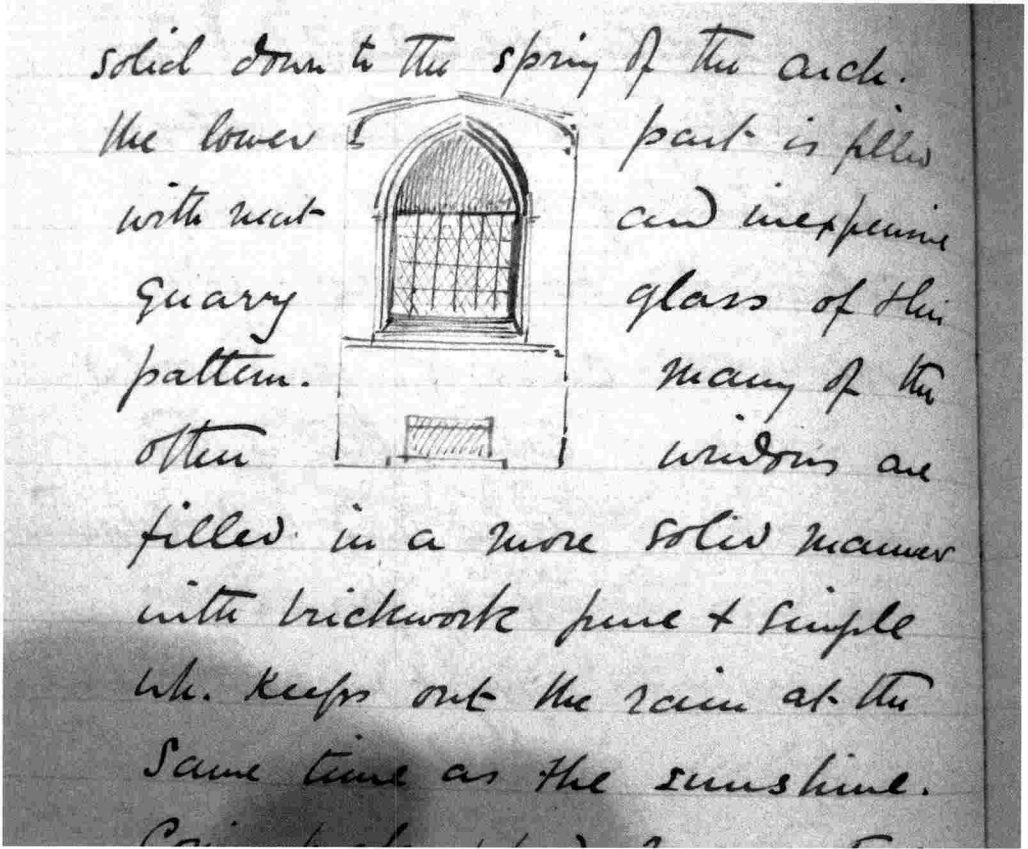 solid down to the spring of the arch.
the lower part is filled
with neat and inexpensive
quarry glass of this
pattern. Many of the
often windows are
filled in a more solid manner
with brickwork pure & simple
wh. keeps out the rain at the
same time as the sunshine.